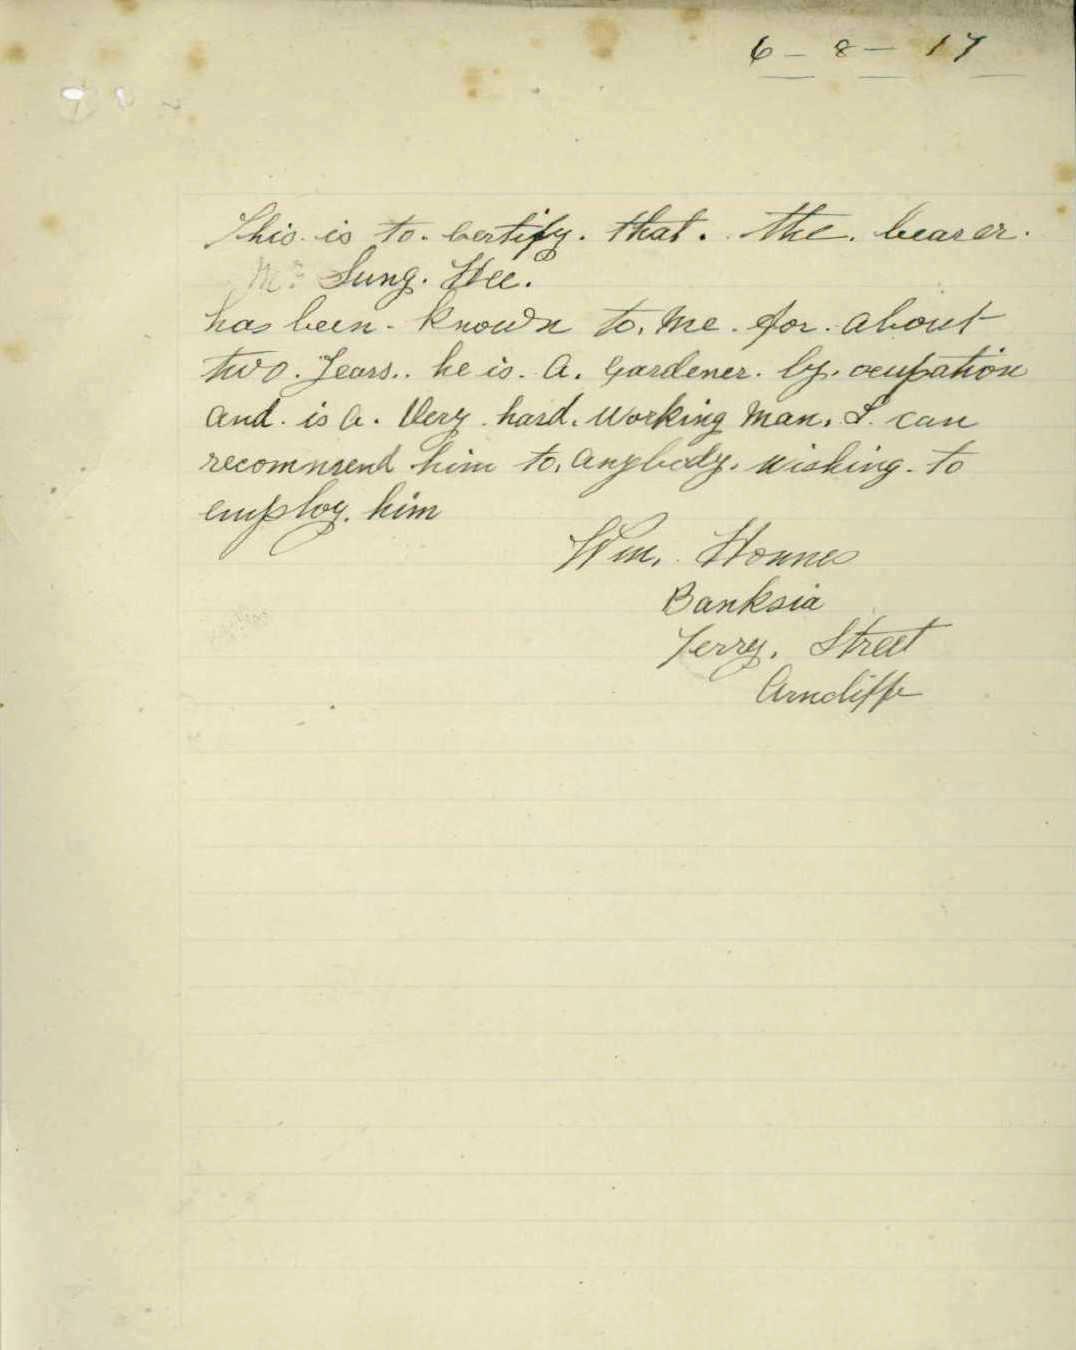 6 - 8 - 17
This is to certify. that. the. bearer.
Mr Sung. Hee.
has been. known to. me. for. about
two. years.. he is. a. gardener. by. ocupation
and. is a. very. hard. working man. I can
recommend him to. anybody. wishing. to
employ. him
Wm. Honnes
Banksia
Terry. Street
Arncliffe